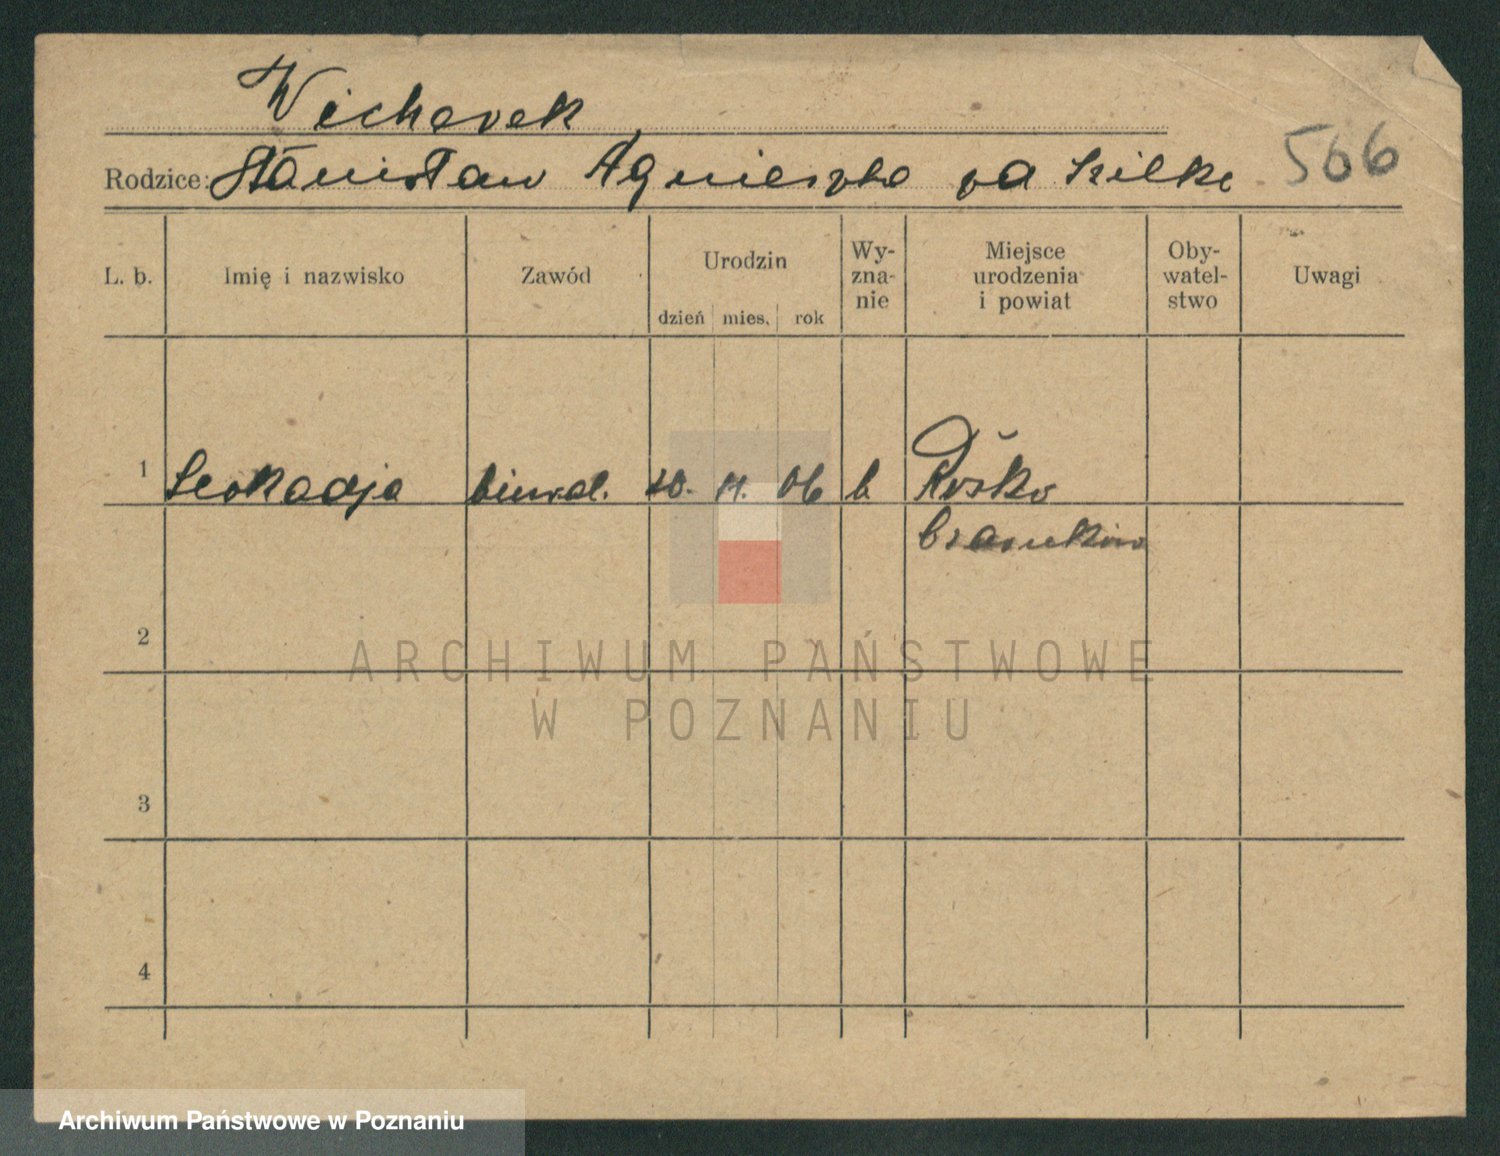 Wicharek
Rodzice: Stanisław Agnieszka
566
L. b. Imię i nazwisko Zawód Urodzin dzień mies. rok Wy-
zna-
nie Miejsce
urodzenia
i powiat Oby-
watel-
stwo Uwagi
1 Leokadja 06 Rosko
Czarnków
2
3
4
ARCHIWUM PAŃSTWOWE
W POZNANIU
Archiwum Państwowe w Poznaniu